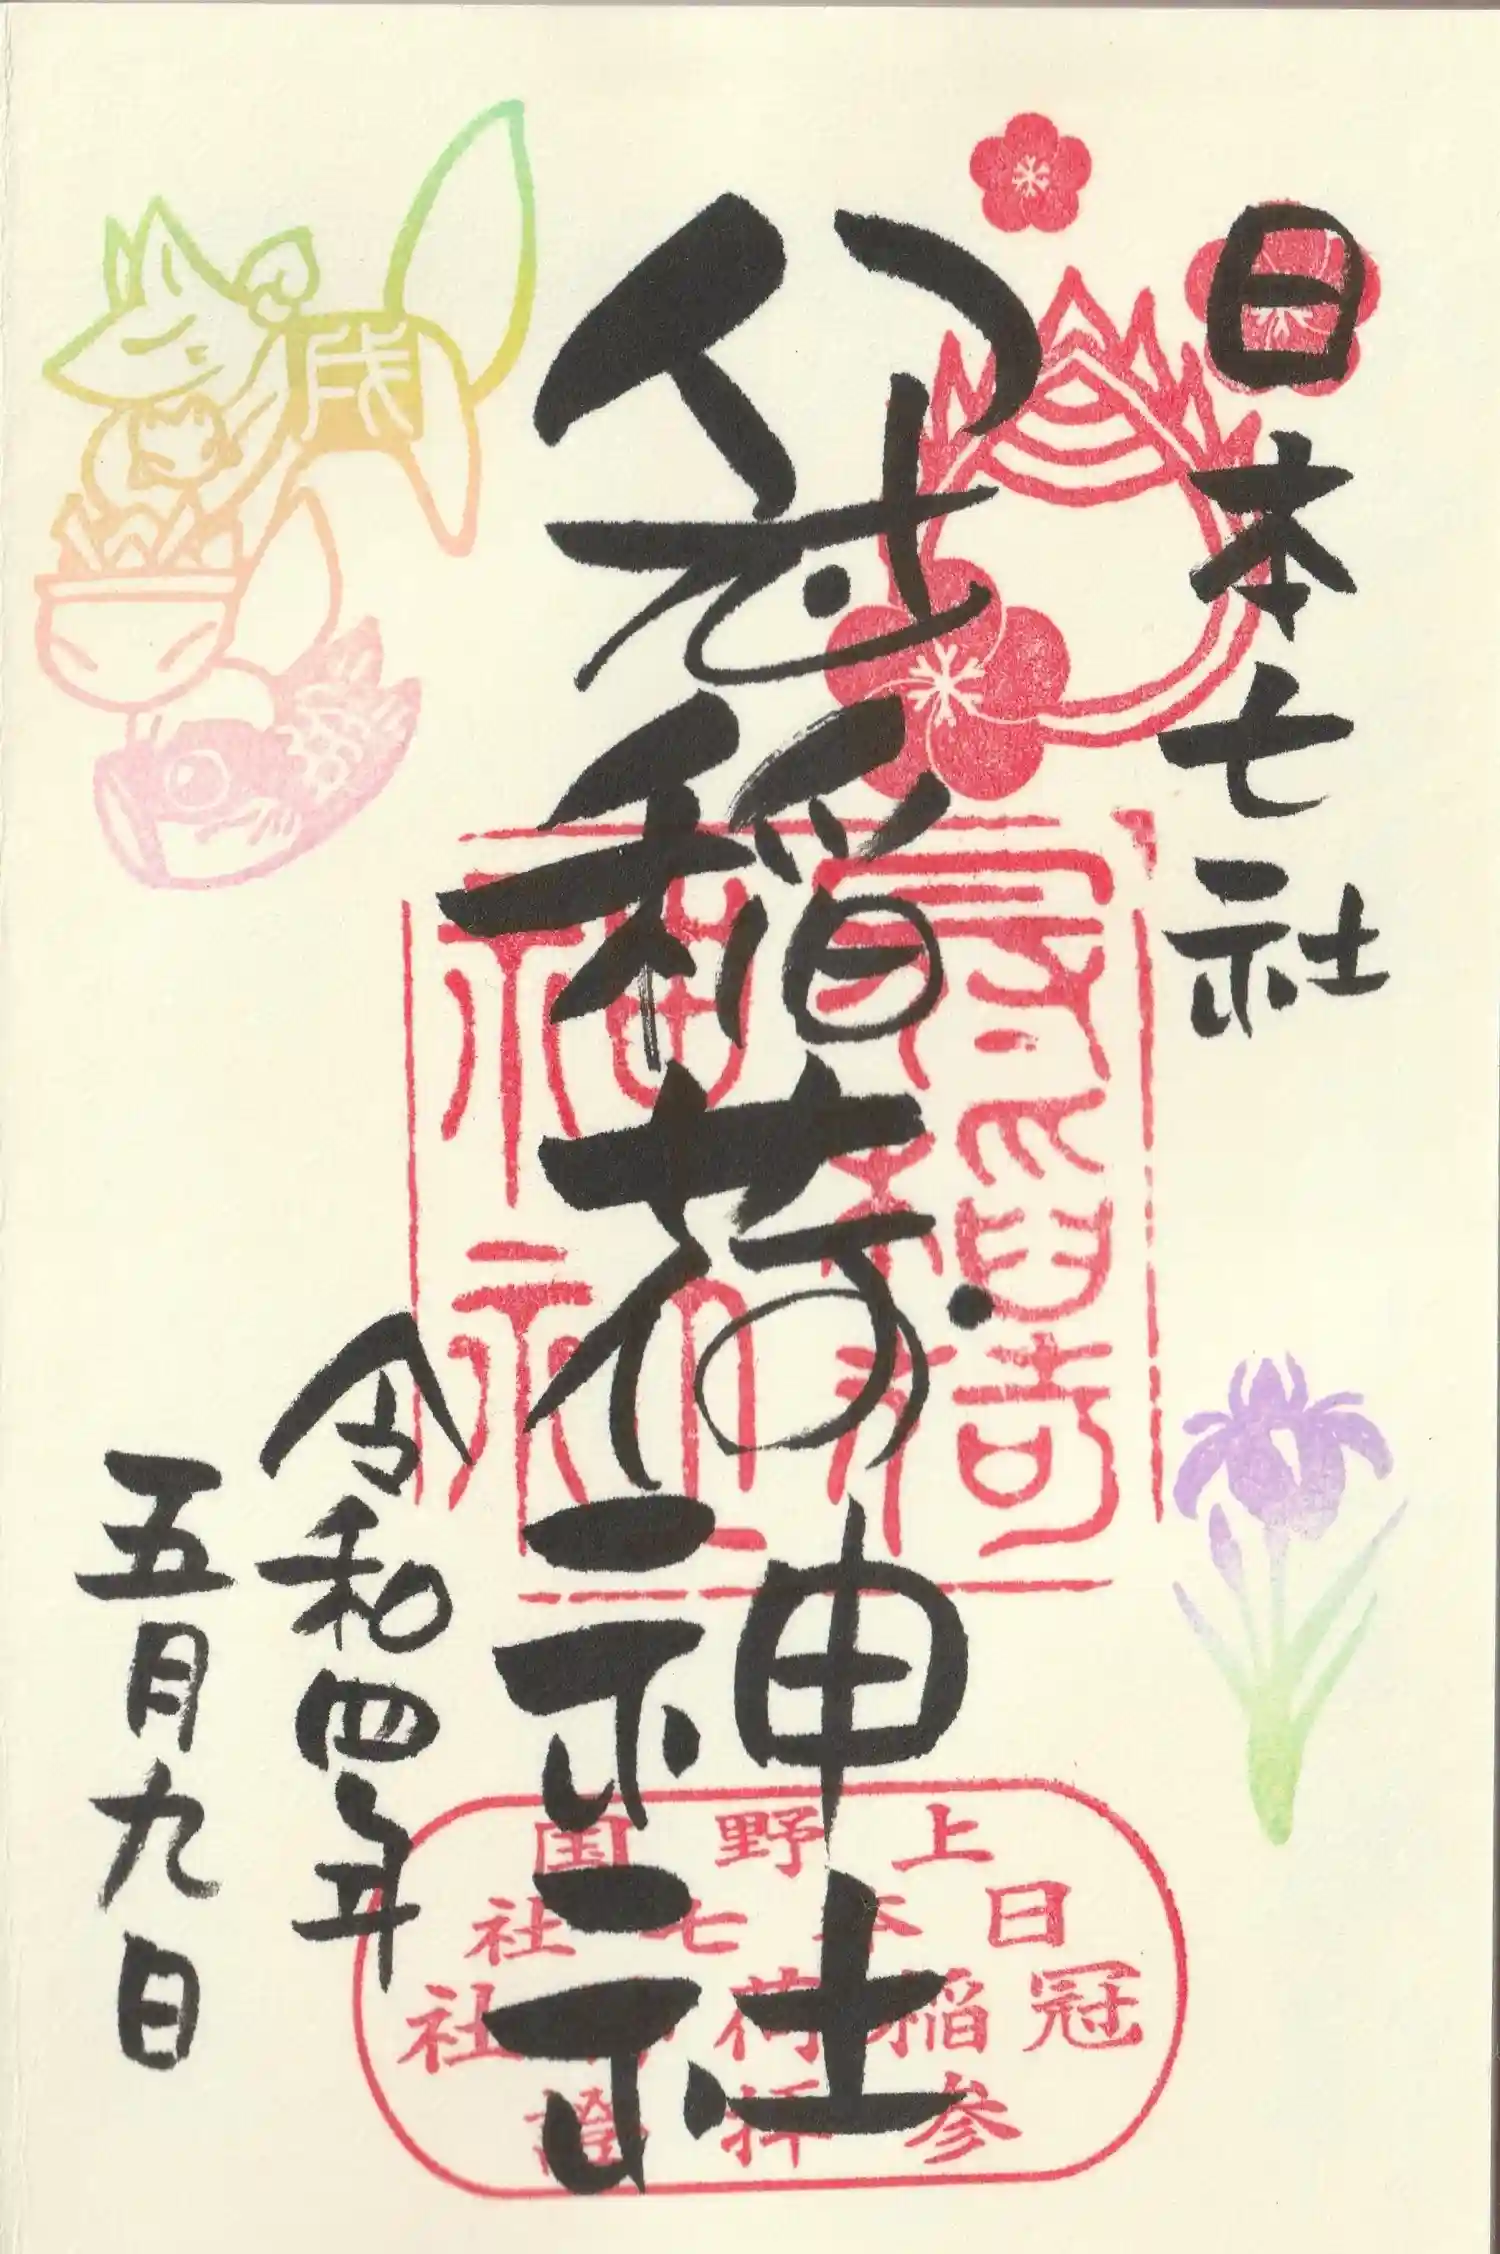 日本七社
冠稲荷神社
令和四年
五月九日
冠稲荷
神社
上野国
日本七社
冠稲荷神社
参拝證